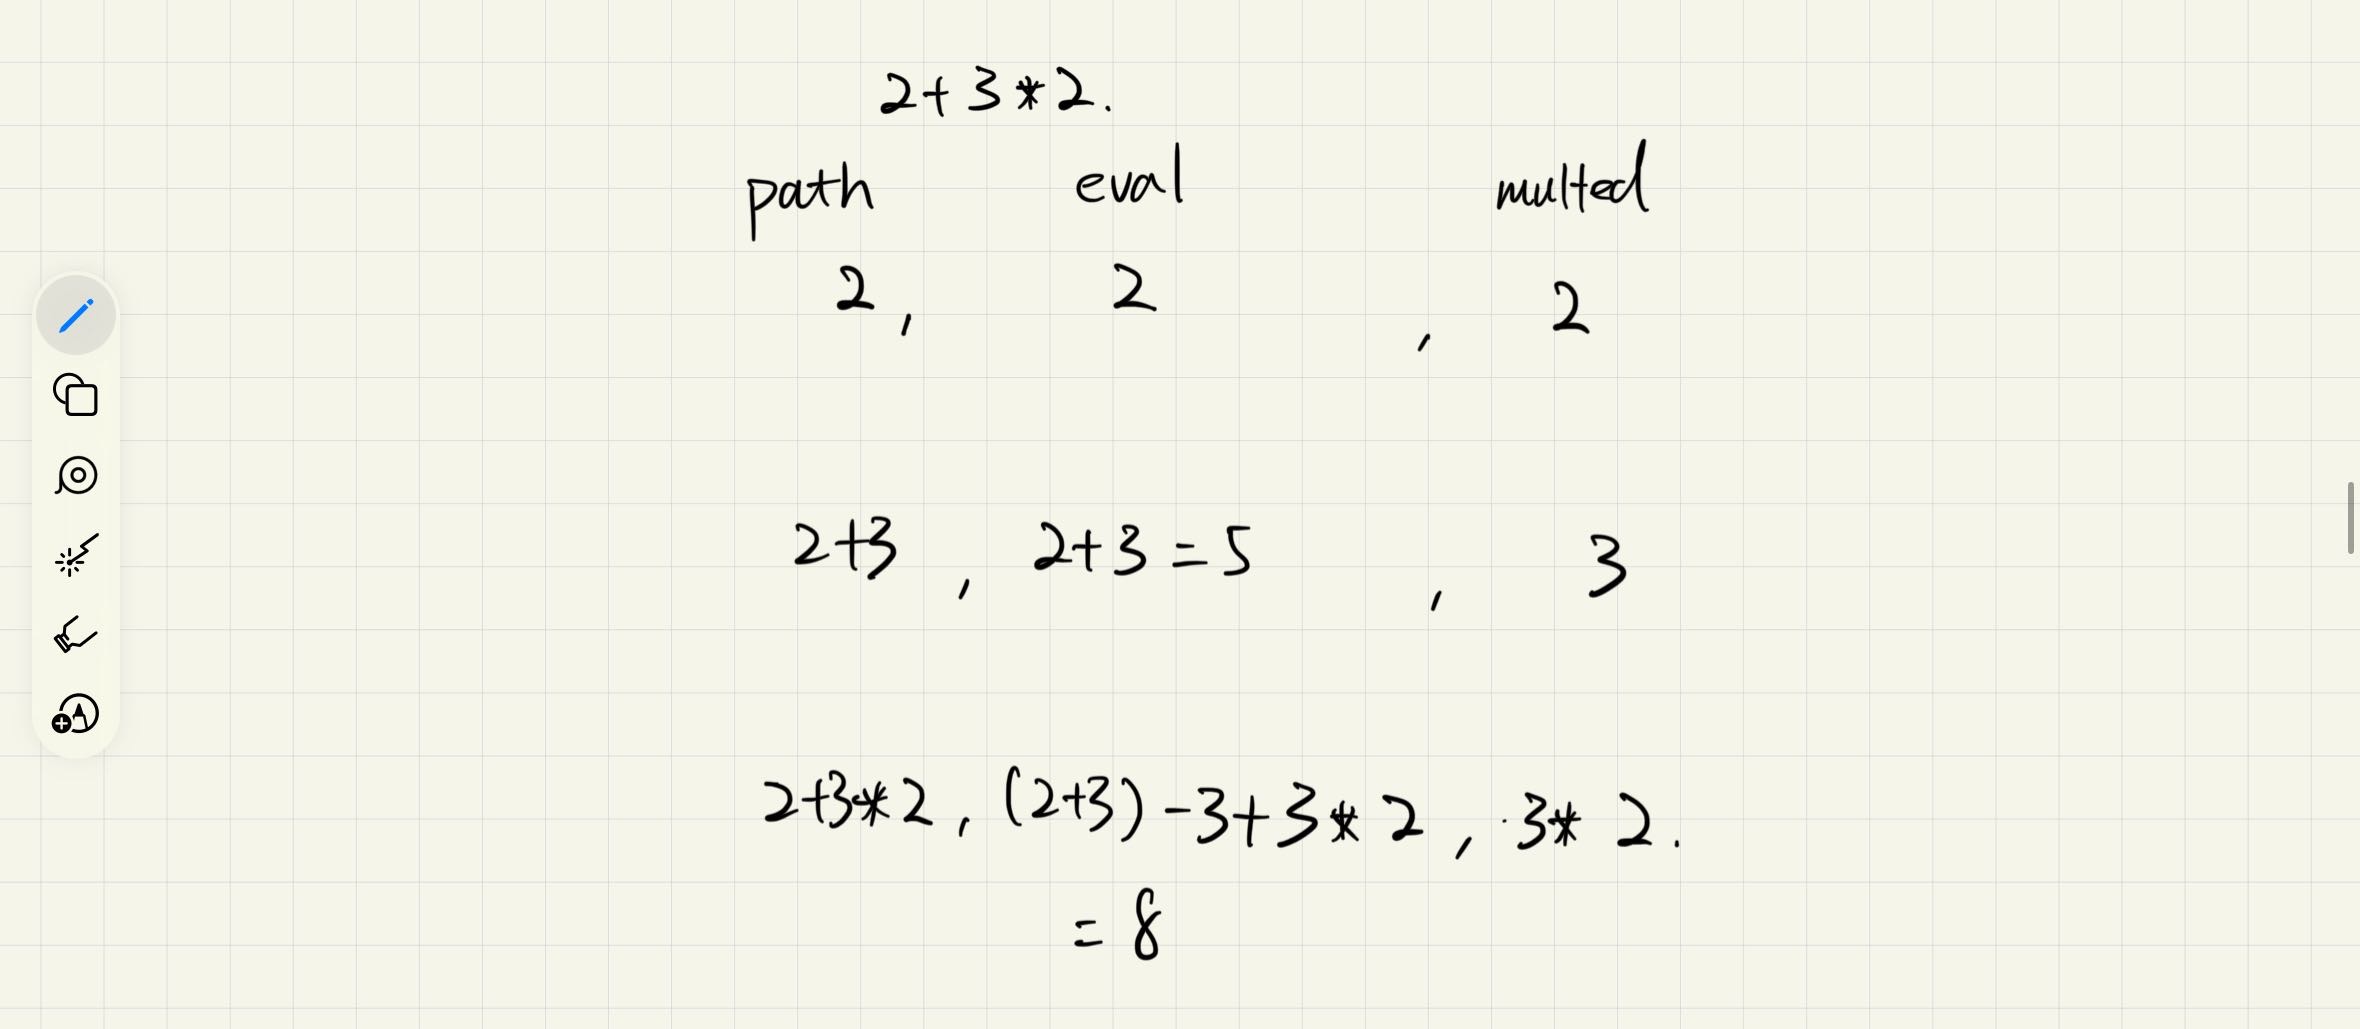 2+3*2.
path eval multed
2, 2, 2
2+3, 2+3=5, 3
2+3*2, (2+3)-3+3*2, 3*2.
=8